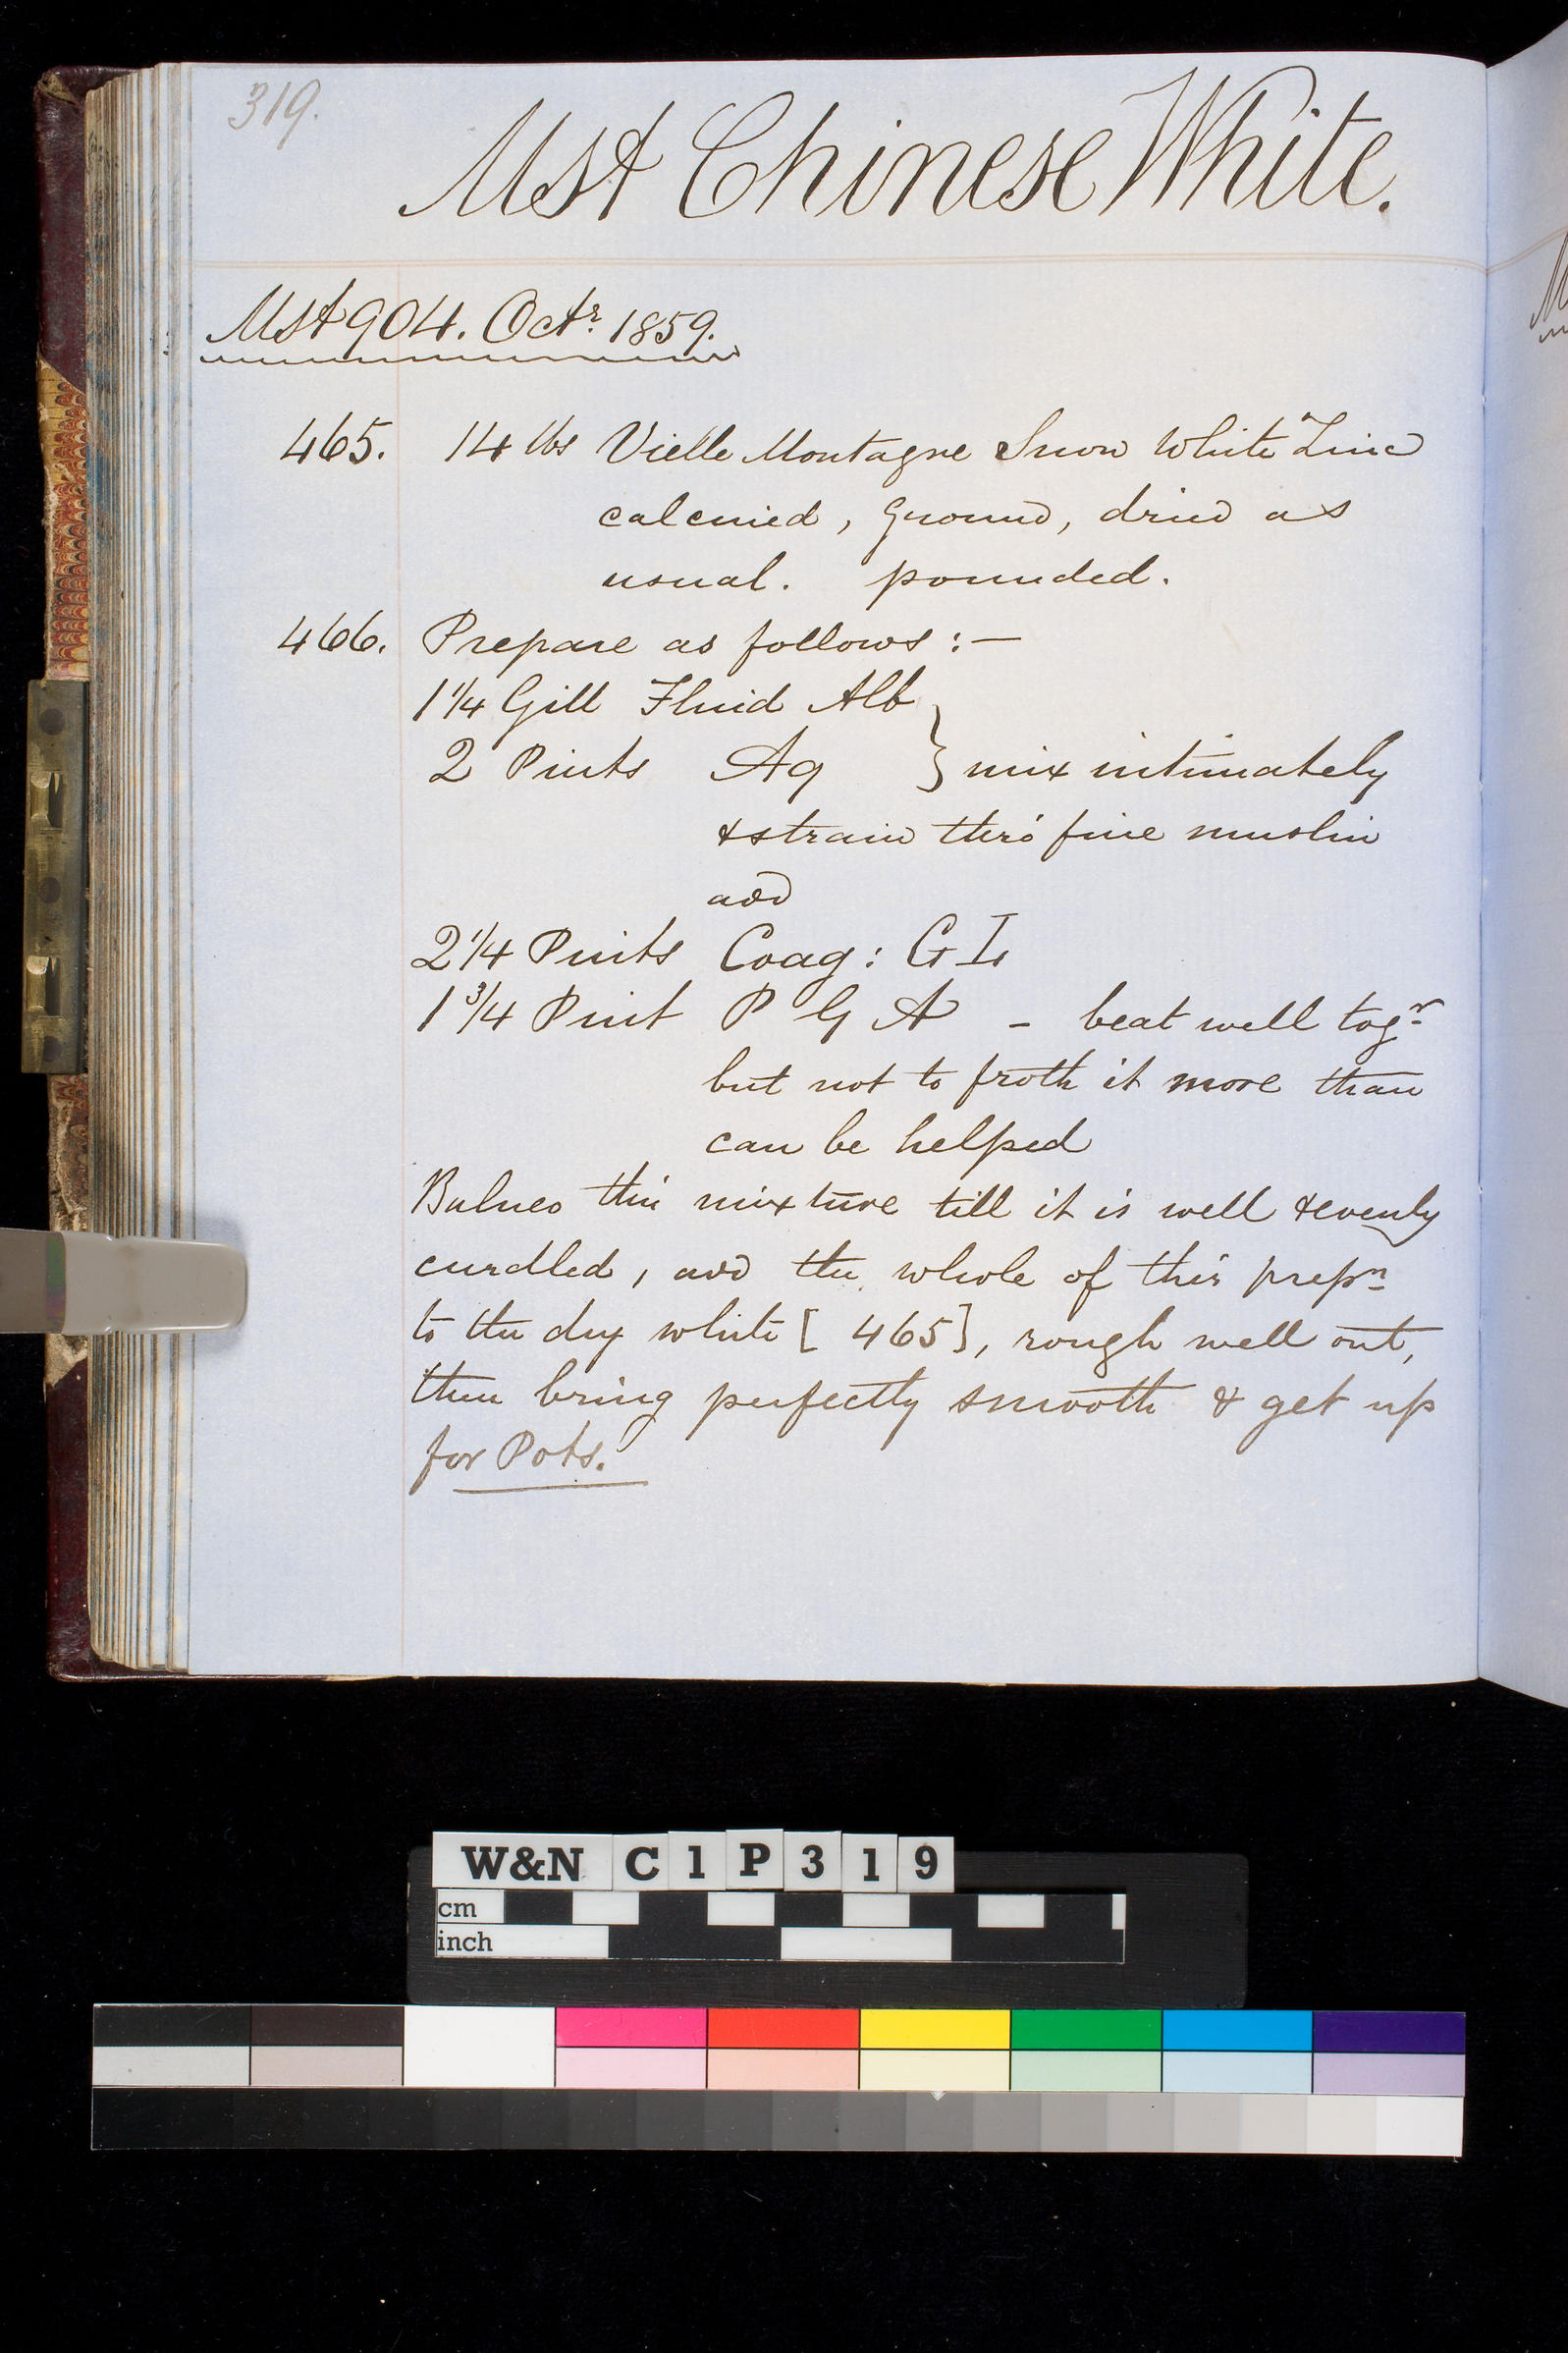 319.
Mst Chinese White.
Mst 904. Octr. 1859.
465. 14 lbs Vielle Montagne Snow White Zinc
calcined, Ground, dried as
usual. pounded.
466. Prepare as follows :—
1 1/4 Gill Fluid Alb
2 Pints Aq } mix intimately
& strain thro' fine muslin
add
2 1/4 Pints Coag: G L
1 3/4 Pint P G A - beat well togr
but not to froth it more than
can be helped
Balneo this mixture till it is well & evenly
curdled, add the whole of this prepn
to the dry white [ 465], rough well out,
then bring perfectly smooth & get up
for Pots.
W&N C1P319
cm
inch